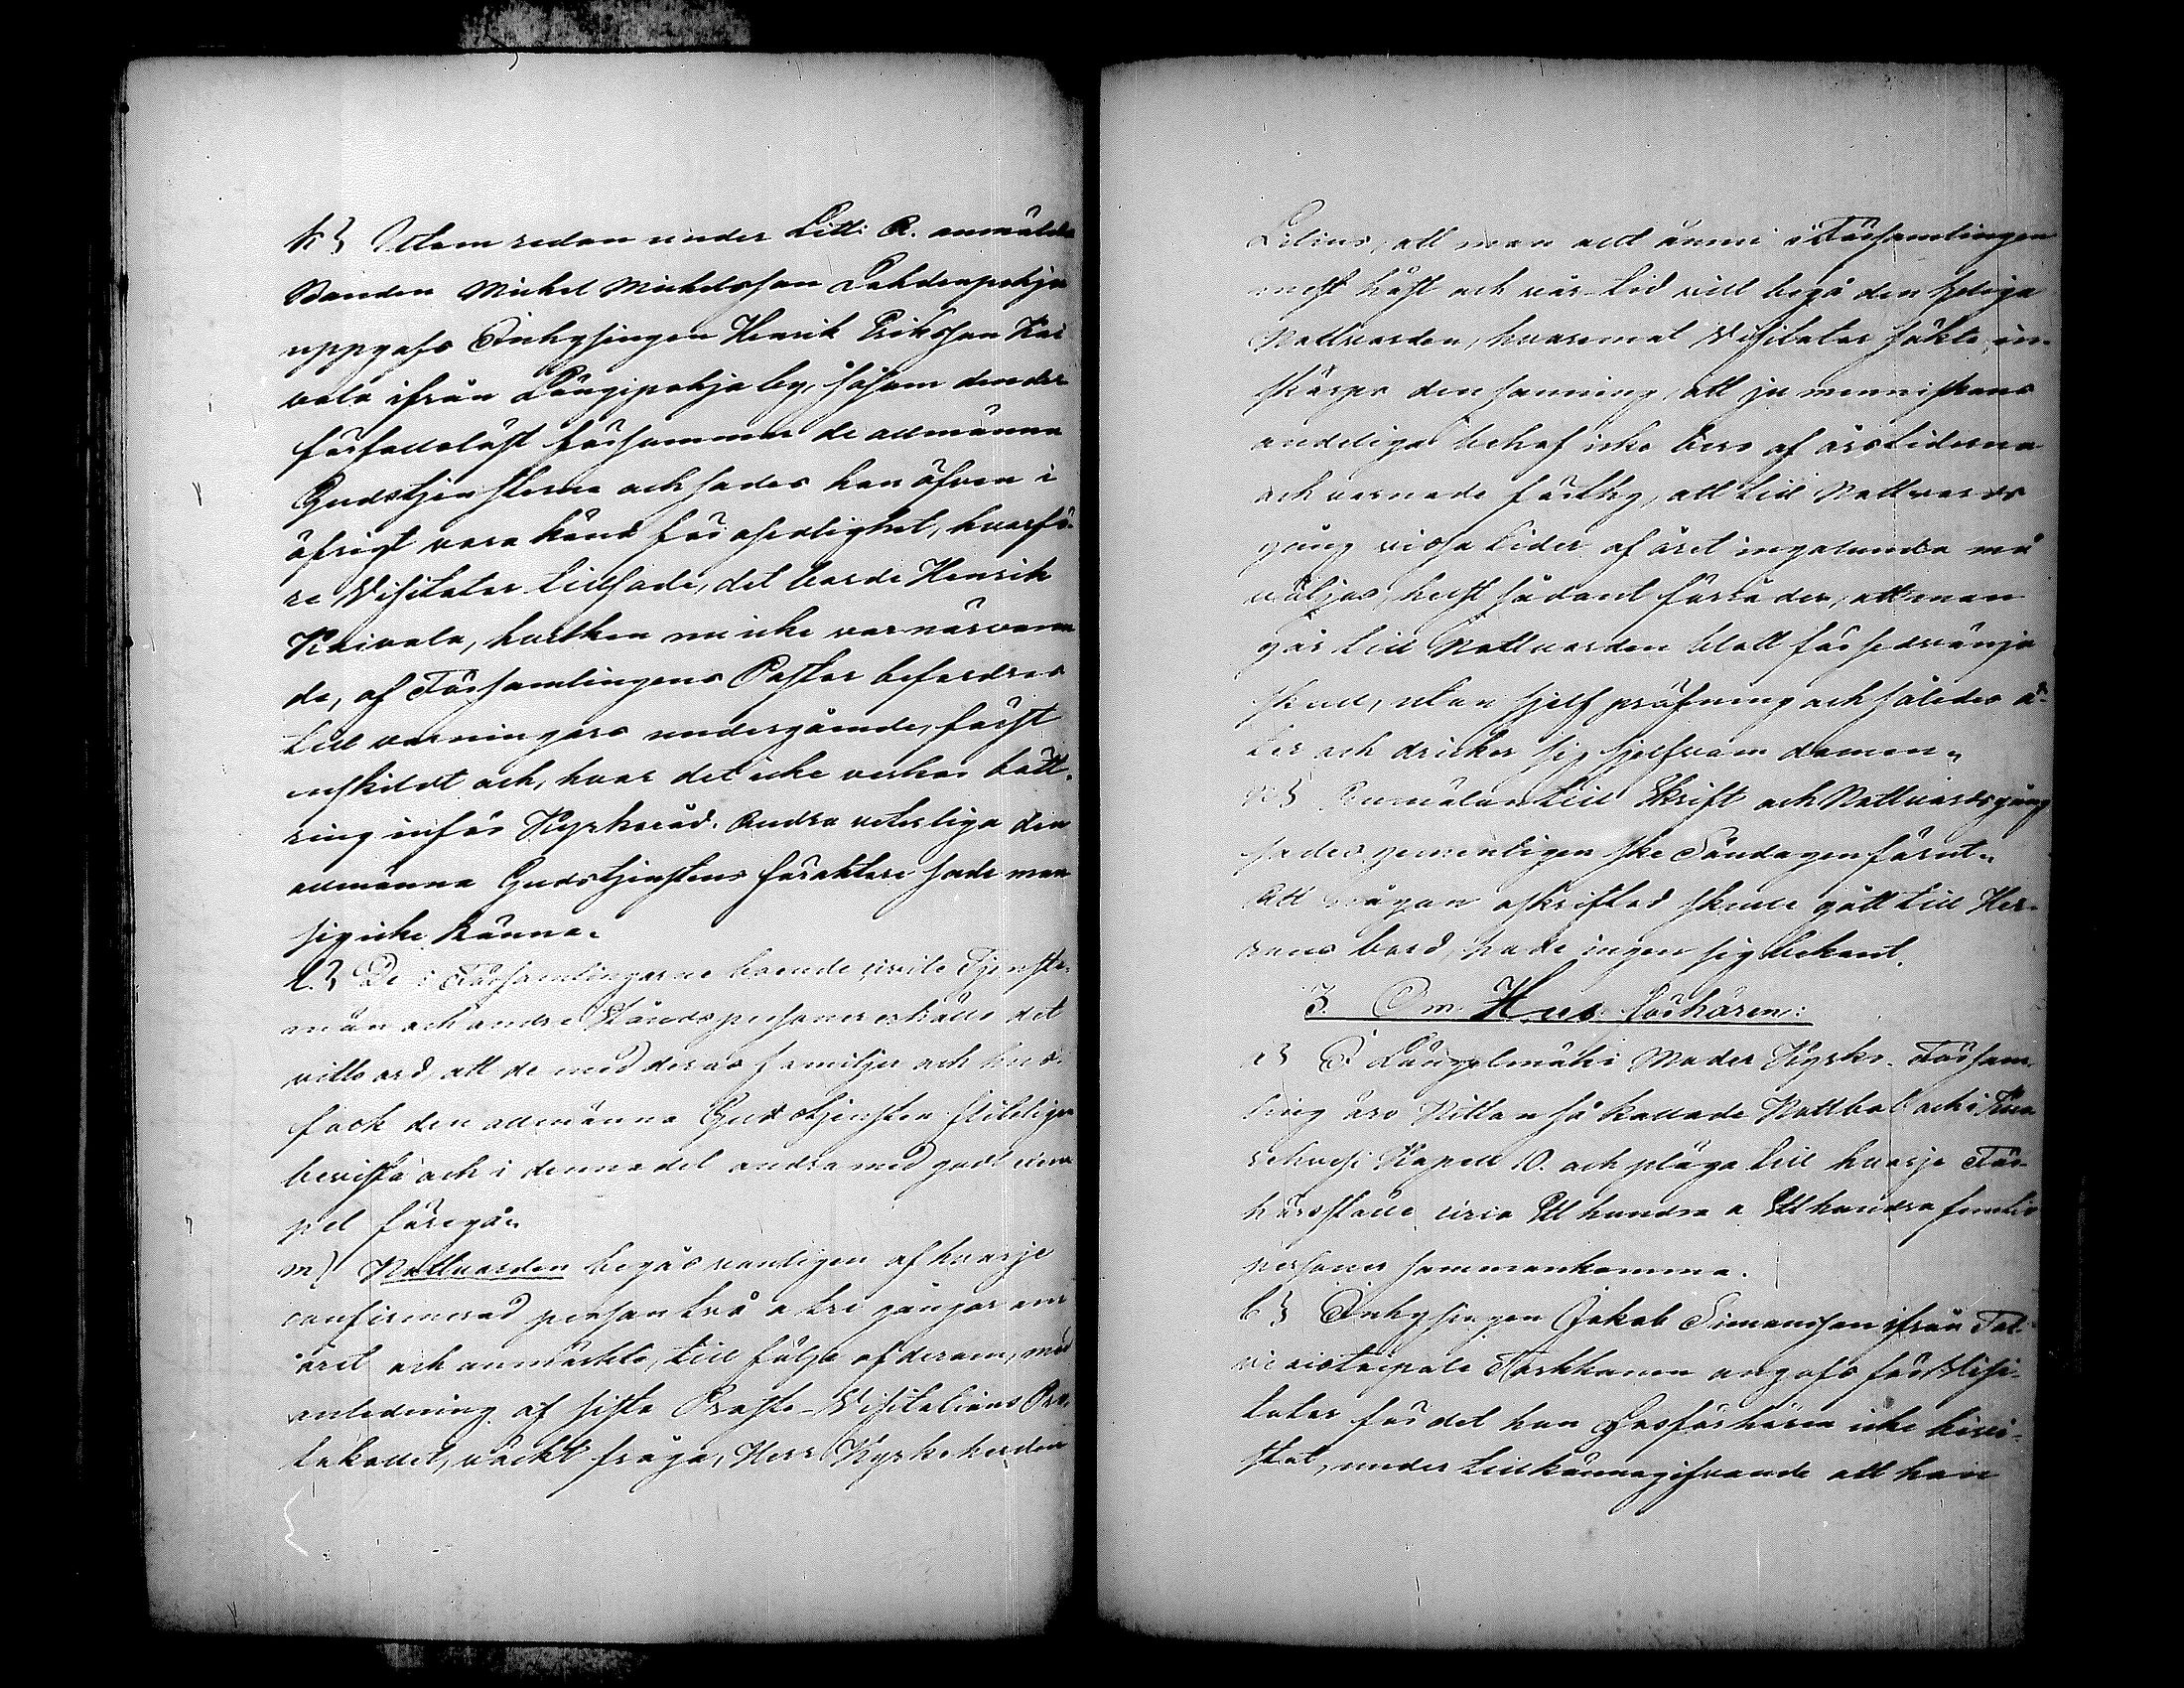 k} Utom redan under Litt: A. anmälde
Bonden Michel Michelsson Lahdenpohja
uppgafs Inhysingen Henrik Eriksson Kai
vola ifrån Längipohja by, såsom den der
förfallolöst försummar de allmänna
Gudstjensterne och sades han äfven i
öfrigt vara känd för osedlighet, hvarfö-
re Visitator tillsade, det borde Henrik
Kaivola, hvilken nu icke var närvaran
de, af Församlingens Pastor befordras
till varningars undergående, först
enskildt och, hvar det icke verkar bätt-
ring inför Kyrkoråd. Andra veterliga den
allmänna Gudstjenstens föraktare sade man
sig icke känna.
l.} De i Församlingarne boende civile Tjenste-
män och andre Ståndspersoner erhölle det
vittsord, att de med deras familjer och hus-
folk den allmänna Gudstjensten fliteligen
bevista och i denna del andra med godt exem
pel föregå.
m} Nattvarden begås vanligen af hvarje
confirmerad person två a tre gånger om
året och anmärkte, till följe af derom, med
anledning af sista Prosta-Visitations Pro-
tokollet, väckt fråga, Herr Kyrkoherden
Lilius, att man allt ännu i Församlingen
mest höst och vår-tid vill begå den heliga
Nattvarden, hvaremot Visitator sökte in-
skärpa den sanning, att ju menniskans
andeliga behof icke bero af årstiderna
och varnade förthy, att till Nattvards
gång vissa tider af året ingalunda må
väljas, helst sådant förråder, att man
går till Nattvarden blott för sedvänja
skull, utan sjelf pröfning och således ä-
ter och dricker sig sjelfvom domen.
n} Anmälan till Skrift och Nattvardsgång
sades gemenligen ske Söndagen förut.
Att någon oskriftad skulle gått till Her-
rans bord, hade ingen sig bekant.
3. Om Hus-förhören:
a} I Längelmäki Moder Kyrko-Församl
ling äro Nitton så kallade Nattbol och i Kuo
rehvesi Kapell 10. och pläga till hvarje För-
hörsställe circa Ett hundra a Ett hundra femtio
personer sammankomma.
b} Inhysingen Jakob Simonsson ifrån Tal-
Torkkanen angafs för Visi-
tator för det han Läsförhören icke bevi-
stat, under tillkännagifvande att han